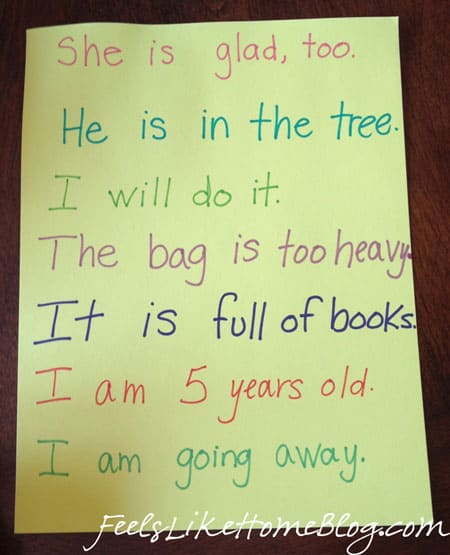 She is glad, too.
He is in the tree.
I will do it.
The bag is too heavy.
It is full of books.
I am 5 years old.
I am going away.
FeelsLikeHomeBlog.com